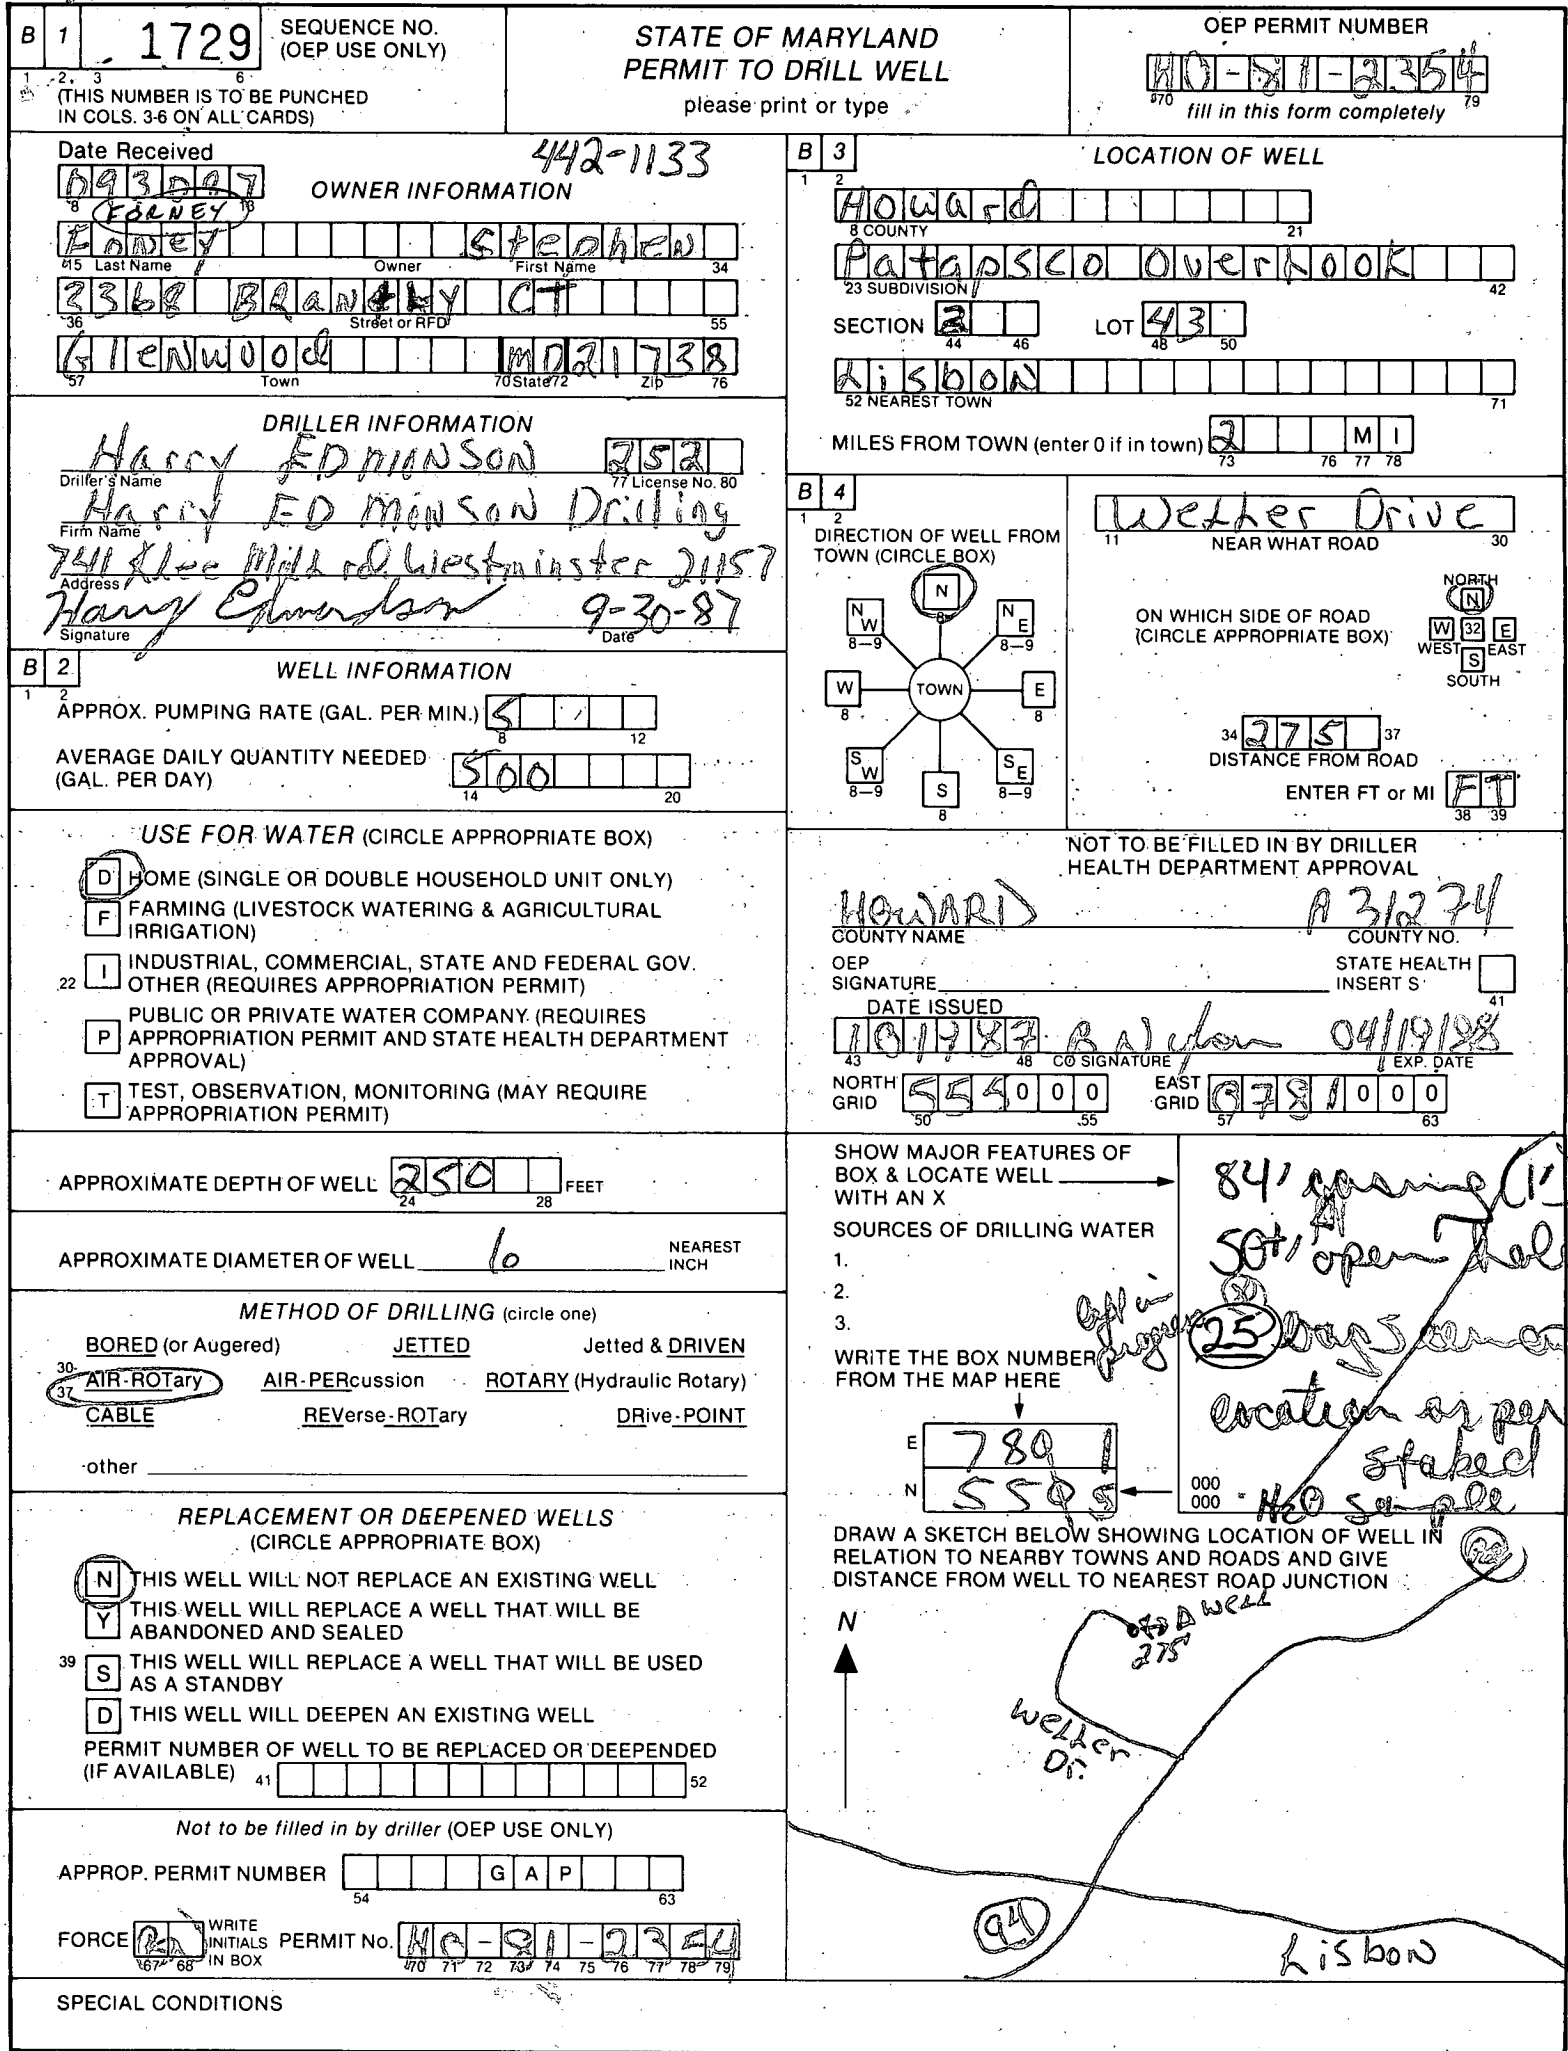 B 1 1729 SEQUENCE NO. (OEP USE ONLY)
1 2 3 6
(THIS NUMBER IS TO BE PUNCHED
IN COLS. 3-6 ON ALL CARDS)
STATE OF MARYLAND
PERMIT TO DRILL WELL
please print or type
OEP PERMIT NUMBER
HO-81-2354
70 79
fill in this form completely
Date Received
442-1133
093087
8 13
OWNER INFORMATION
FORNEY
Foney Stephen
15 Last Name Owner First Name 34
3368 CT
36 Street or RFD 55
Glenwood MD 21738
57 Town 70 State 72 Zip 76
DRILLER INFORMATION
Harry EDMINSON 252
Driller's Name 77 License No. 80
Harry EDMINSON Drilling
Firm Name
7411 Klee Mill rd. Westminster 21157
Address
Harry Edmondson 9-30-87
Signature Date
B 2 WELL INFORMATION
1 2
APPROX. PUMPING RATE (GAL. PER MIN.) 5
8 12
AVERAGE DAILY QUANTITY NEEDED
(GAL. PER DAY) 500
14 20
USE FOR WATER (CIRCLE APPROPRIATE BOX)
D HOME (SINGLE OR DOUBLE HOUSEHOLD UNIT ONLY)
F FARMING (LIVESTOCK WATERING & AGRICULTURAL
IRRIGATION)
22 I INDUSTRIAL, COMMERCIAL, STATE AND FEDERAL GOV.
OTHER (REQUIRES APPROPRIATION PERMIT)
P PUBLIC OR PRIVATE WATER COMPANY (REQUIRES
APPROPRIATION PERMIT AND STATE HEALTH DEPARTMENT
APPROVAL)
T TEST, OBSERVATION, MONITORING (MAY REQUIRE
APPROPRIATION PERMIT)
APPROXIMATE DEPTH OF WELL 250 FEET
24 28
APPROXIMATE DIAMETER OF WELL 6 NEAREST
INCH
METHOD OF DRILLING (circle one)
BORED (or Augered) JETTED Jetted & DRIVEN
30-37 AIR-ROTary AIR-PERcussion ROTARY (Hydraulic Rotary)
CABLE REVerse-ROTary DRive-POINT
other
REPLACEMENT OR DEEPENED WELLS
(CIRCLE APPROPRIATE BOX)
N THIS WELL WILL NOT REPLACE AN EXISTING WELL
Y THIS WELL WILL REPLACE A WELL THAT WILL BE
ABANDONED AND SEALED
39 S THIS WELL WILL REPLACE A WELL THAT WILL BE USED
AS A STANDBY
D THIS WELL WILL DEEPEN AN EXISTING WELL
PERMIT NUMBER OF WELL TO BE REPLACED OR DEEPENDED
(IF AVAILABLE) 41 52
Not to be filled in by driller (OEP USE ONLY)
APPROP. PERMIT NUMBER G A P
54 63
FORCE WRITE INITIALS IN BOX PERMIT No. HO-81-2354
67 68 70 71 72 73 74 75 76 77 78 79
SPECIAL CONDITIONS
B 3 LOCATION OF WELL
1 2
Howard
8 COUNTY 21
Patapsco Overlook
23 SUBDIVISION 42
SECTION 2 LOT 43
44 46 48 50
Lisbon
52 NEAREST TOWN 71
MILES FROM TOWN (enter 0 if in town) 2 M I
73 76 77 78
B 4
1 2
DIRECTION OF WELL FROM
TOWN (CIRCLE BOX)
N
8
NW NE
8-9 8-9
W TOWN E
8 8
SW SE
8-9 8-9
S
8
Weller Drive
11 NEAR WHAT ROAD 30
ON WHICH SIDE OF ROAD
(CIRCLE APPROPRIATE BOX)
NORTH
N
W 32 E
WEST EAST
S
SOUTH
34 275 37
DISTANCE FROM ROAD
ENTER FT or MI FT
38 39
NOT TO BE FILLED IN BY DRILLER
HEALTH DEPARTMENT APPROVAL
HOWARD A 31274
COUNTY NAME COUNTY NO.
OEP
SIGNATURE STATE HEALTH
INSERT S
41
DATE ISSUED
101787 04/19/88
43 48 CO SIGNATURE EXP. DATE
NORTH
GRID 555000 EAST
GRID 0781000
50 55 57 63
SHOW MAJOR FEATURES OF
BOX & LOCATE WELL
WITH AN X
SOURCES OF DRILLING WATER
1.
2.
3.
WRITE THE BOX NUMBER
FROM THE MAP HERE
E 7891
N 5595
000
000
84' casing (1')
50+' open
25
location as per
staked
H2O sample
DRAW A SKETCH BELOW SHOWING LOCATION OF WELL IN
RELATION TO NEARBY TOWNS AND ROADS AND GIVE
DISTANCE FROM WELL TO NEAREST ROAD JUNCTION
N
well
275'
Weller
Dr.
94
Lisbon